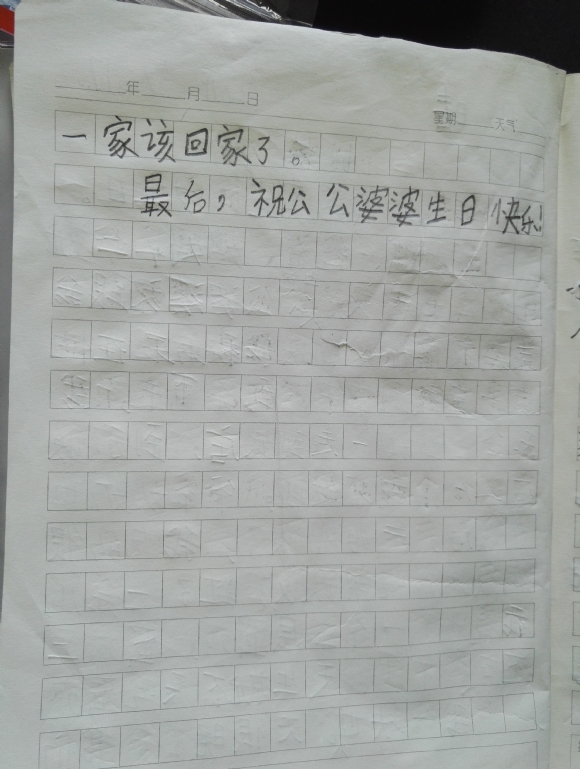 年 月 日
星期 天气
一家该回家了。
最后，祝公公婆婆生日快乐！